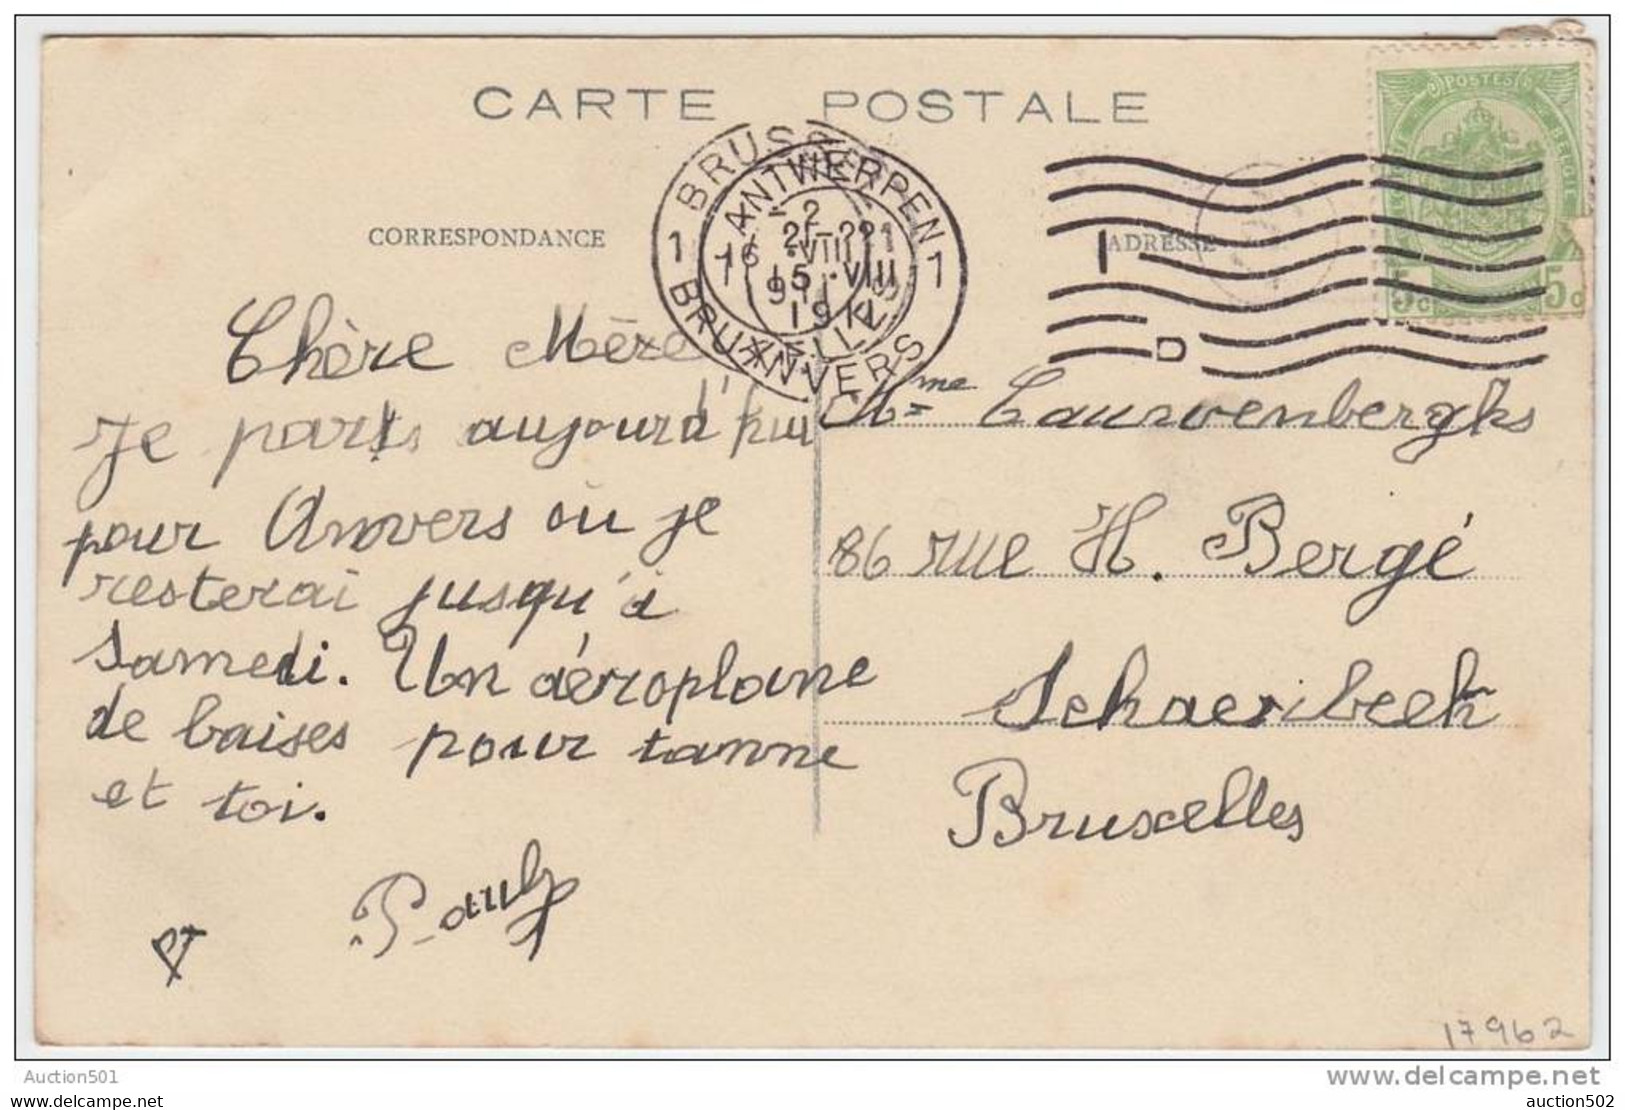 CARTE POSTALE
CORRESPONDANCE
ADRESSE
POSTES
BELGIE
5c 5c
BRUSS
1 1
BRUX ELLES
ANTWERPEN
1 1
ANVERS
16 VIII
15 VIII
1911
Chère Mère
Je pars aujourd'hui
pour Anvers où je
resterai jusqu'à
Samedi. Un aéroplane
de baises pour tanne
et toi.
Paul
Mme Cauwenberghs
86 rue H. Bergé
Schaerbeek
Bruxelles
17962
Auction501
www.delcampe.net
auction502